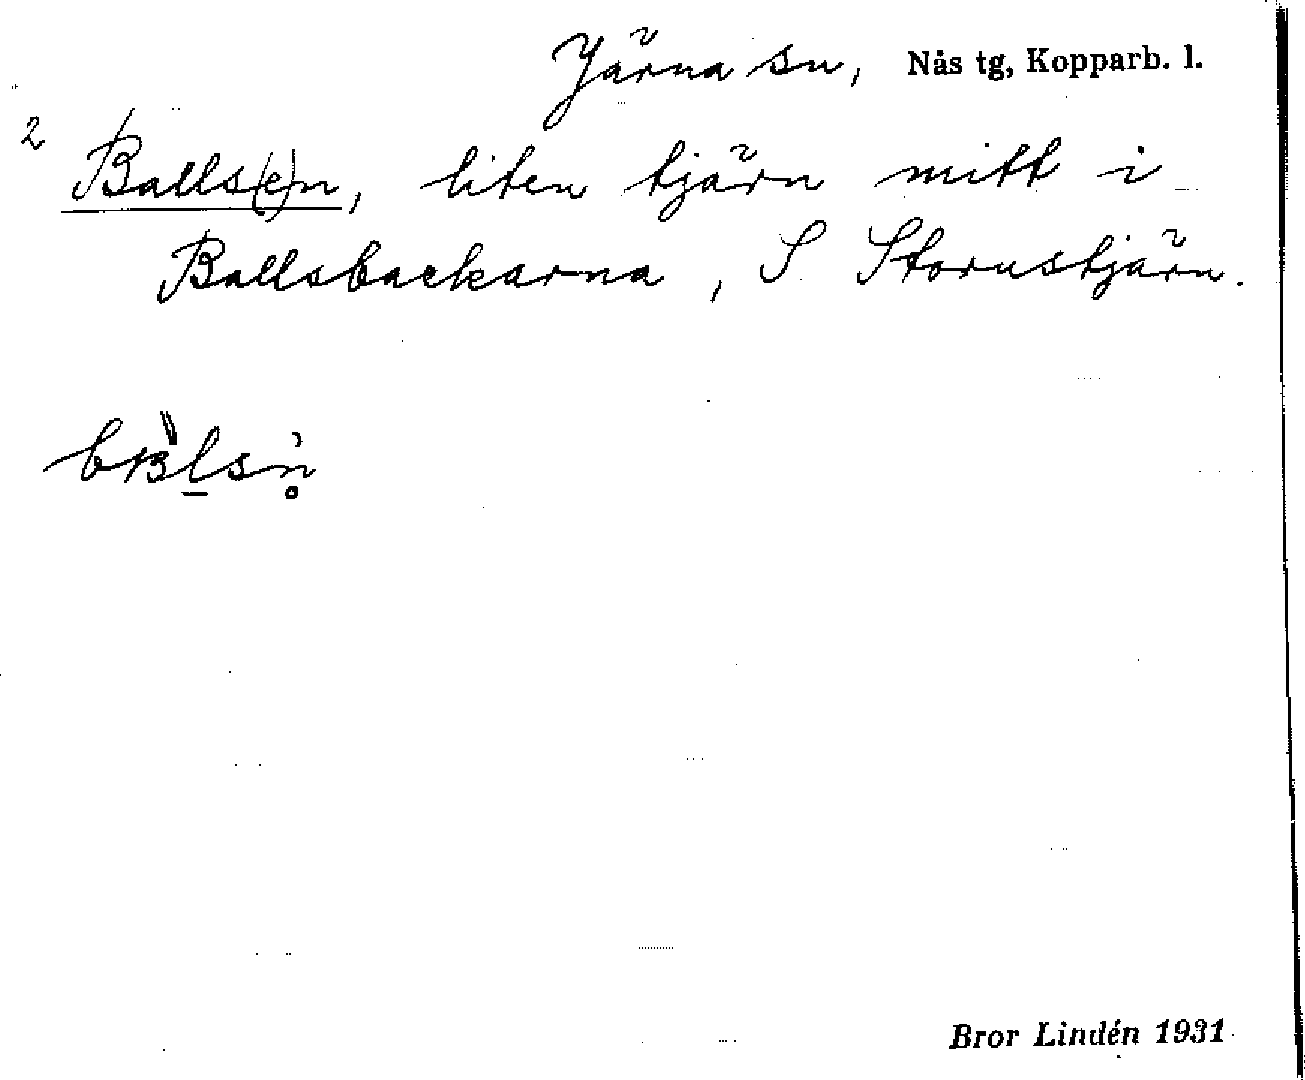 Järna sn, Nås tg, Kopparb. l.
2 Balls(e)n, liten tjärn mitt i
Ballsbackarna, S Stornstjärn.
Bror Lindén 1931